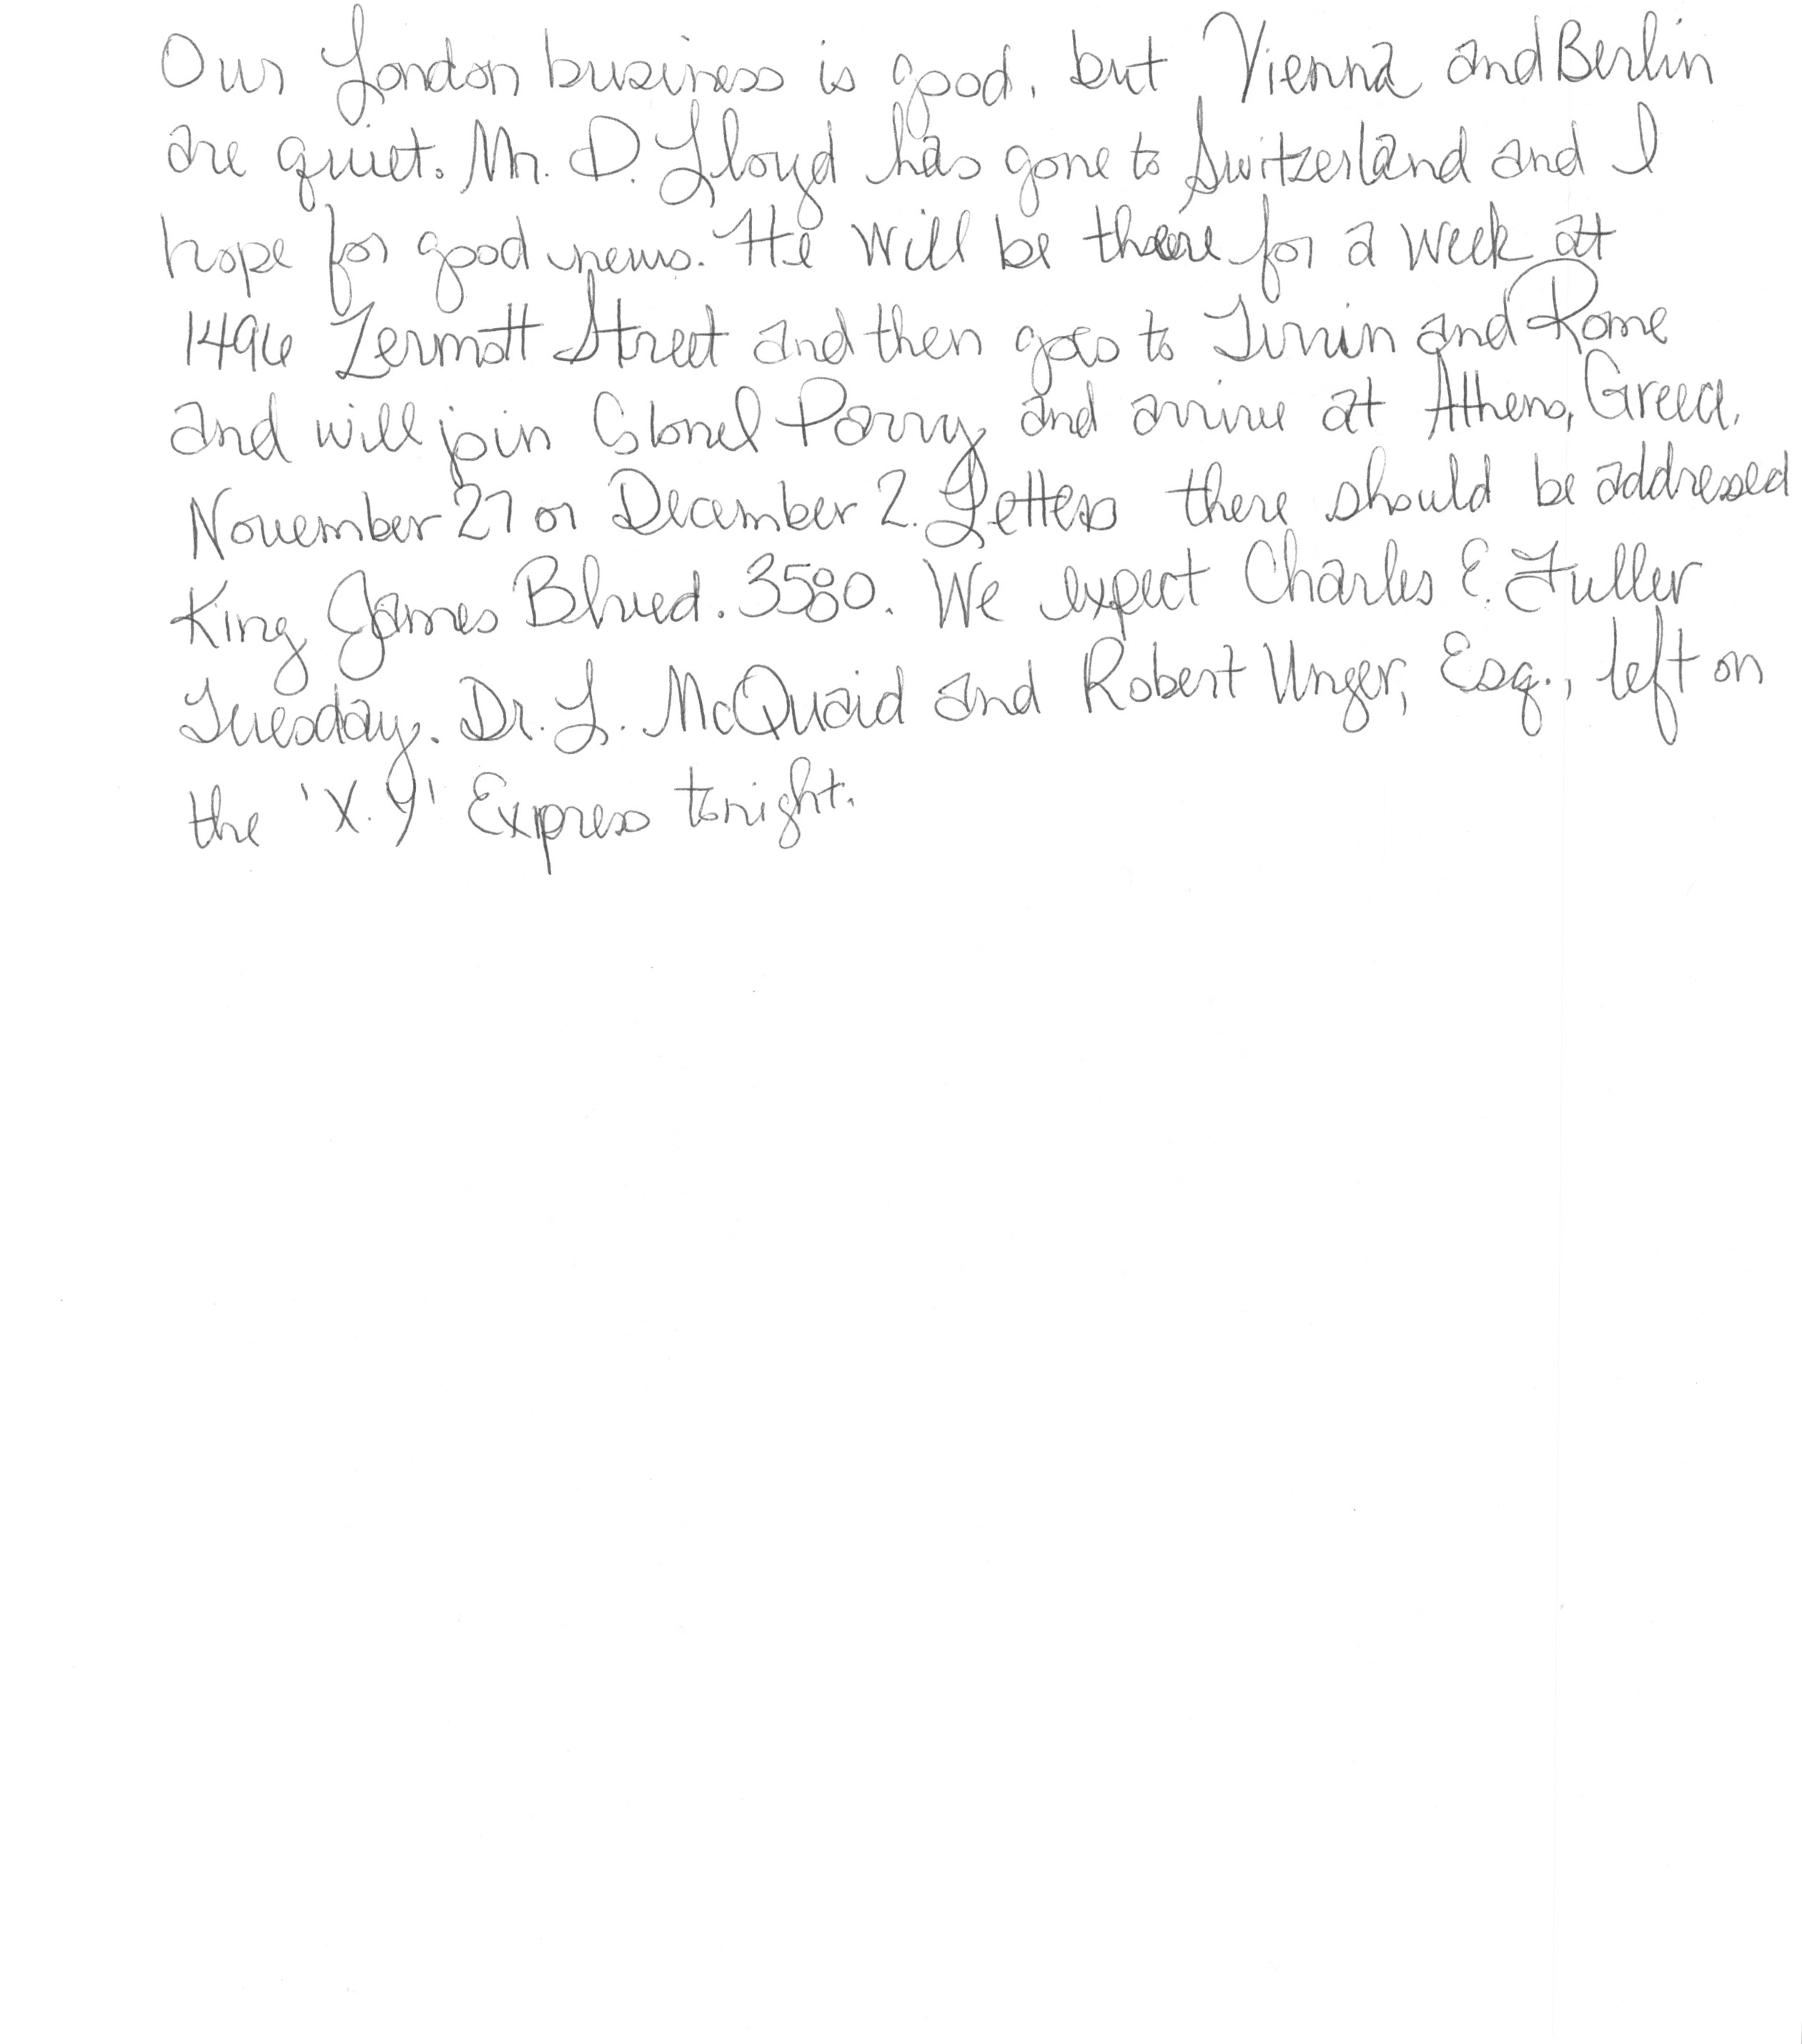 Our London business is good, but Vienna and Berlin
are quiet. Mr. D. Lloyd has gone to Switzerland and I
hope for good news. He will be there for a week at
1496 Zermott Street and then goes to Turin and Rome
and will join Colonel Parry and arrive at Athens, Greece,
November 27 or December 2. Letters there should be addressed
King James Blvd. 3580. We expect Charles E. Fuller
Tuesday. Dr. L. McQuaid and Robert Unger, Esq., left on
the 'X.9' Express tonight.